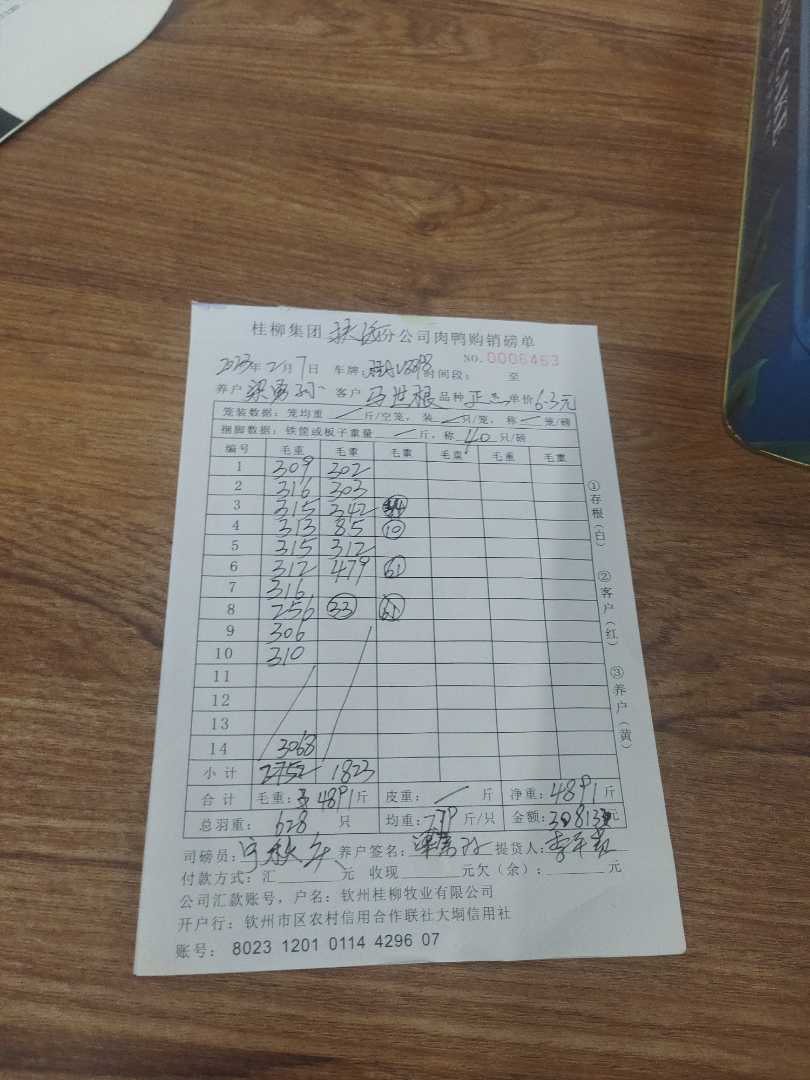 桂柳集团 分公司肉鸭购销磅单
NO.0006463
2023年2月7日 车牌: 时间段: 至
养户 客户 马世根 品种 正 单价 6.3元
笼装数据: 笼均重 / 斤/空笼, 装 / 只/笼, 称 / 笼/磅
捆脚数据: 铁筐或板子重量 / 斤, 称 40 只/磅
编号 毛重 毛重 毛重 毛重 毛重 毛重
1 309 302
2 316 303
3 315 342
4 313 85 10
5 315 312
6 312 479 61
7 316
8 256 33 61
9 306
10 310
11
12
13
14 3068
小计 2752 1823
合计 毛重: 4891斤 皮重: / 斤 净重: 4891斤
总羽重: 628 只 均重: 7.79斤/只 金额: 30813元
司磅员: 养户签名: 提货人:
付款方式: 汇 元 收现 元欠(余): 元
公司汇款账号, 户名: 钦州桂柳牧业有限公司
开户行: 钦州市区农村信用合作联社大垌信用社
账号: 8023 1201 0114 4296 07
①存根(白)
②客户(红)
③养户(黄)